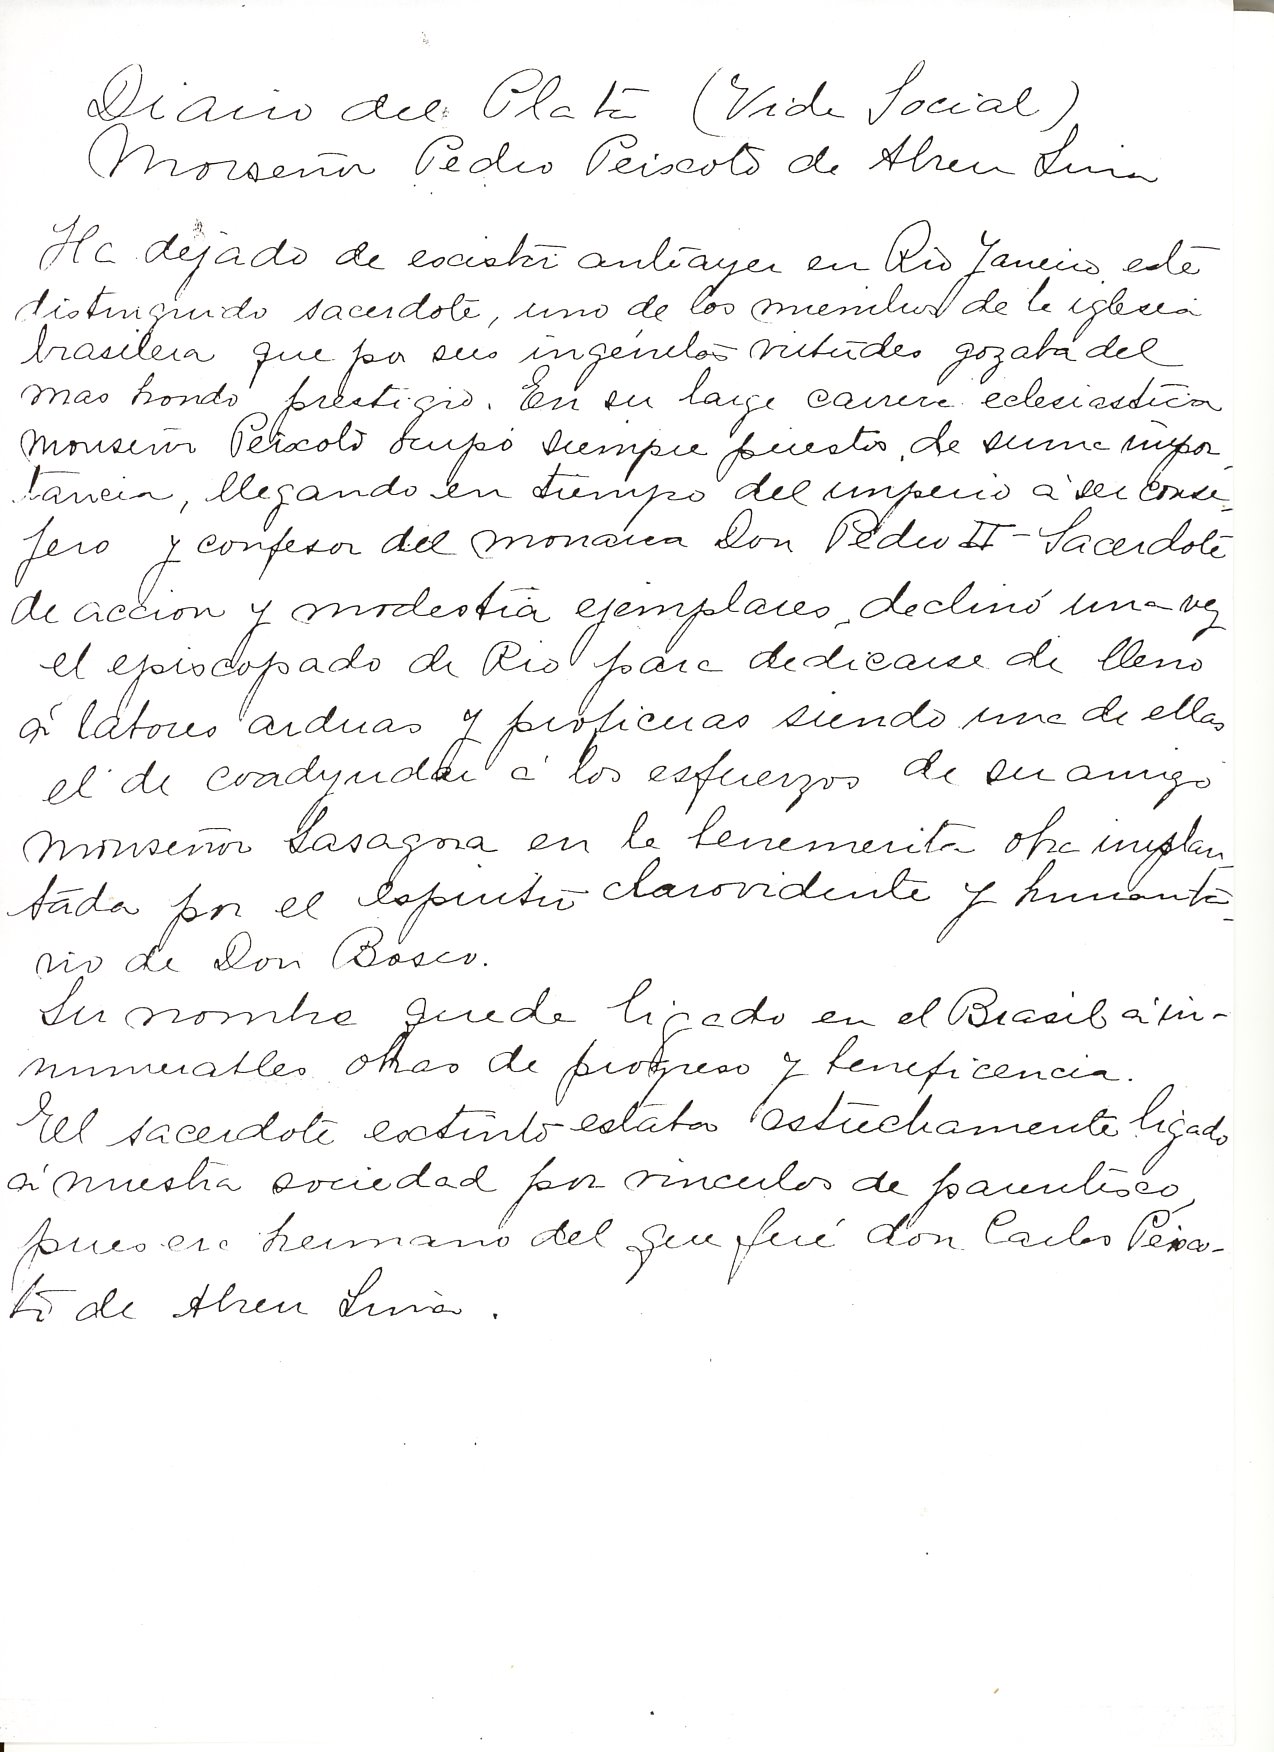 Diario del Plata (Vida Social)
Monseñor Pedro Peixoto de Abreu Lima
Ha dejado de existir anteayer en Rio Janeiro este
distinguido sacerdote, uno de los miembros de la iglesia
brasilera que por sus ingénitas virtudes gozaba del
mas hondo prestigio. En su larga carrera eclesiastica
monseñor Peixoto ocupó siempre puestos de suma impor_
tancia, llegando en tiempo del imperio á ser conse_
jero y confesor del monarca Don Pedro II - Sacerdote
de accion y modestia ejemplares, declinó una vez
el episcopado de Rio para dedicarse de lleno
á labores arduas y proficuas siendo una de ellas
el de coadyudar á los esfuerzos de su amigo
monseñor Lasagna en la benemerita obra implan_
tada por el espiritu clarovidente y humanita_
rio de Don Bosco.
Su nombre queda ligado en el Brasil á in-
numerables obras de progreso y beneficencia.
El sacerdote extinto estaba estrechamente ligado
á nuestra sociedad por vinculos de parentesco,
pues era hermano del que fué don Carlos Peixo-
to de Abreu Lima.